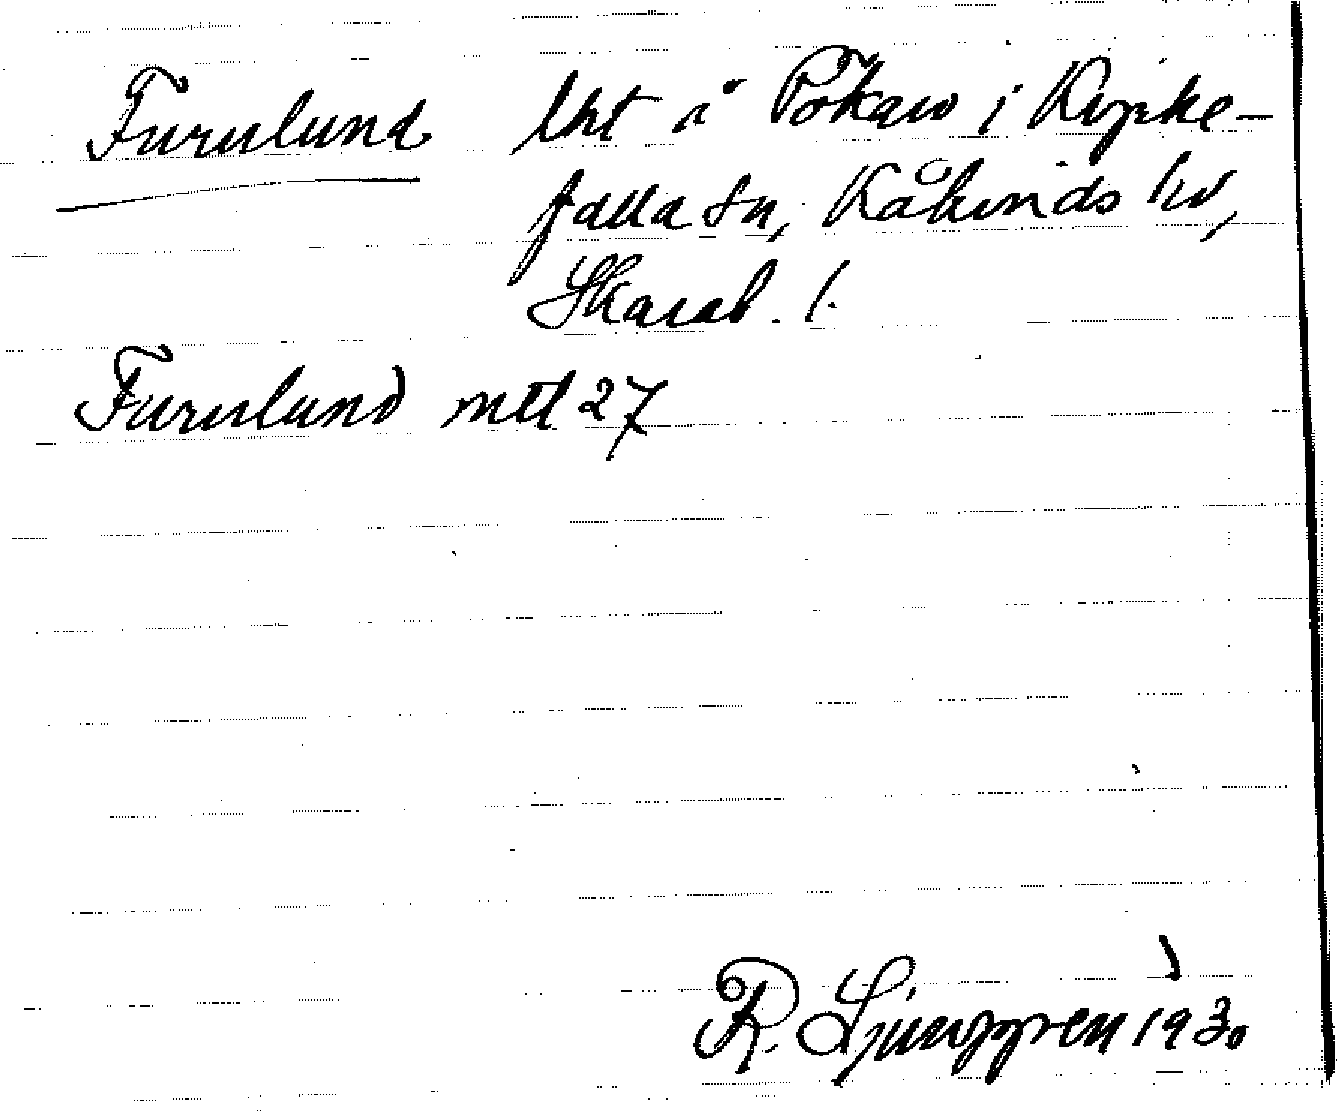 Furulund lht å Pokaw i Ryrke-
falla sn, Kåkinds hd,
Skarab. l.
Furulund mtl 27
R. Ljunggren 1930